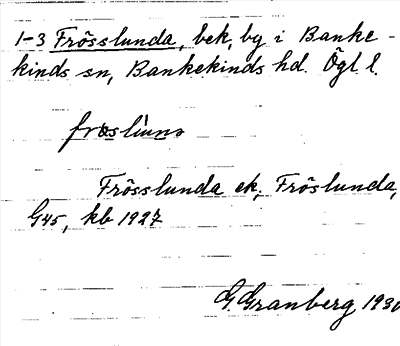 1-3 Frösslunda, bek, by i Banke-
kinds sn, Bankekinds hd. Ögl l.
Frösslunda ek, Fröslunda,
G45, kb 1927
G. Granberg 1930